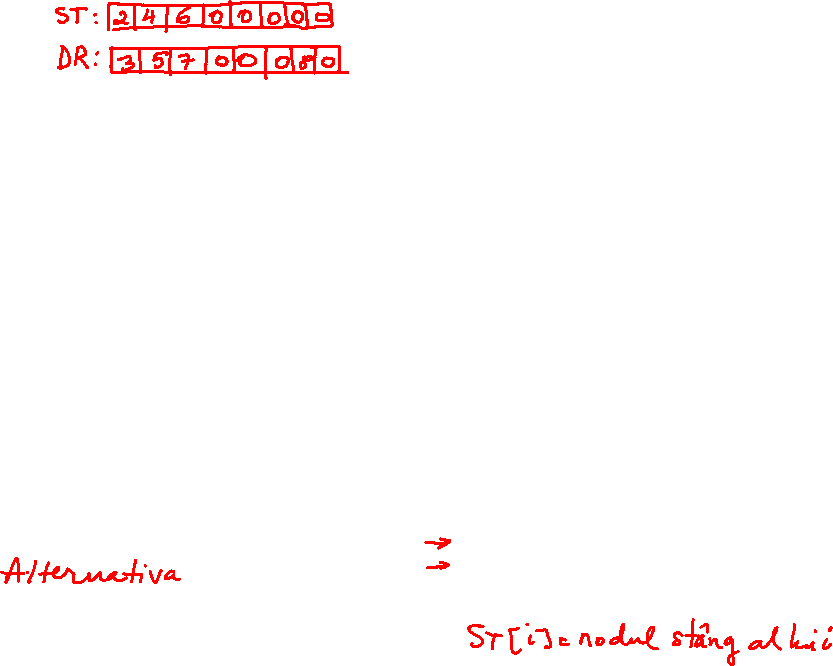 ST: 2 4 6 0 0 0 0 0
DR: 3 5 7 0 0 0 8 0
→
→
Alternativa
ST[i] = nodul stâng al lui i